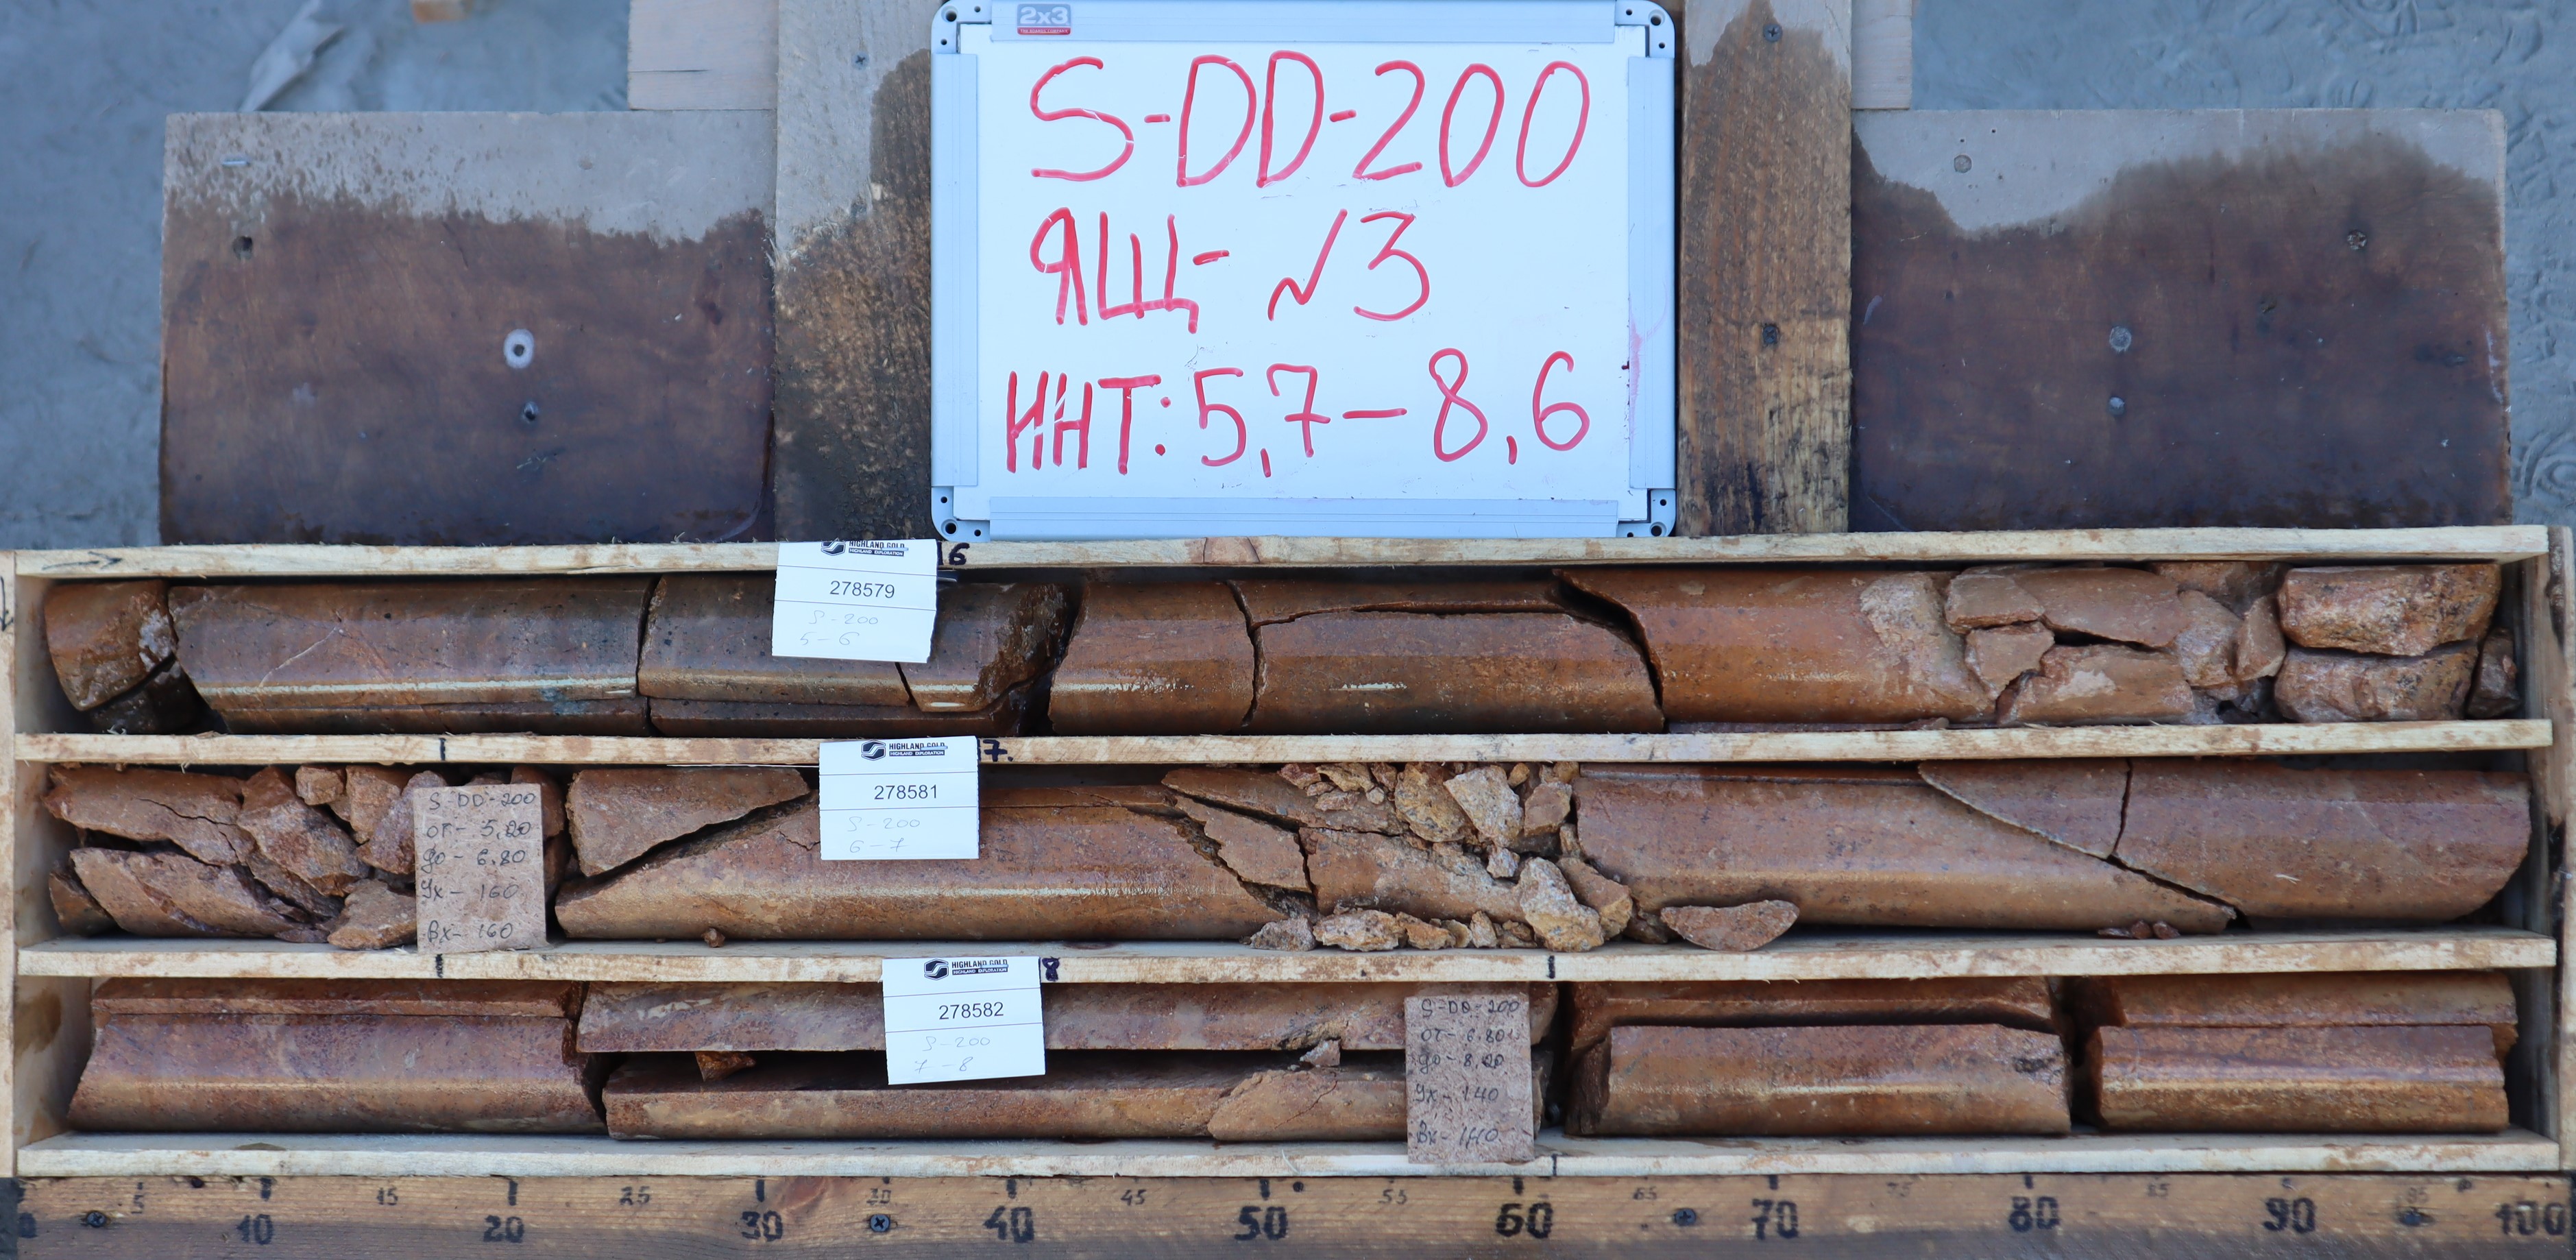 2x3
S-DD-200
ЯЩ- №3
ИНТ: 5,7-8,6
HIGHLAND GOLD
HIGHLAND EXPLORATION
278579
S-200
5-6
6
HIGHLAND GOLD
HIGHLAND EXPLORATION
278581
S-200
6-7
7.
S-DD-200
от- 5,20
до- 6,80
Ух- 160
Вх- 160
HIGHLAND GOLD
HIGHLAND EXPLORATION
278582
S-200
7-8
8
S-DD-200
от- 6,80
до- 8,20
Ух- 140
Вх- 140
5 10 15 20 25 30 30 40 45 50 55 60 65 70 75 80 85 90 95 100